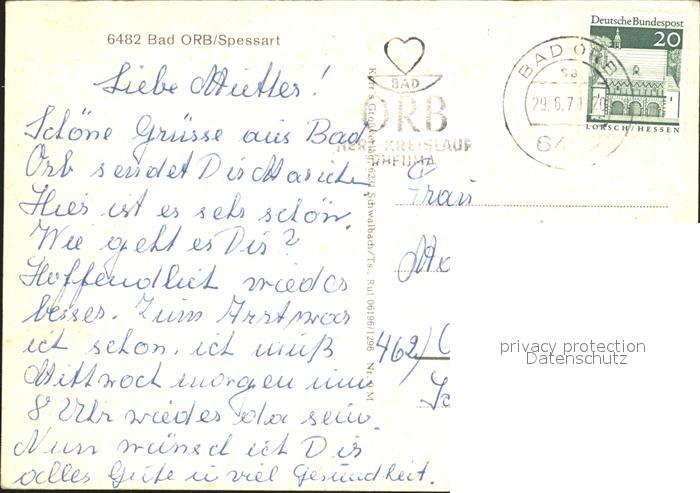 6482 Bad ORB/Spessart
Liebe Mutter!
Schöne Grüsse aus Bad
Orb sendet Dir
Hier ist es sehr schön.
Wie geht es Dir?
Hoffendlich wieder
besser. Zum Arzt war
ich schon. ich muß
Mittwoch morgen um
8 Uhr wieder da sein.
Nun wünsch ich Dir
alles Gute u viel Gesundheit.
BAD
ORB
HERZ KREISLAUF
RHEUMA
BAD ORB
29.6.70
64
Deutsche Bundespost
20
LORSCH/HESSEN
6231 Schwalbach/Ts., Ruf 06196/1296
Frau
462)
privacy protection
Datenschutz